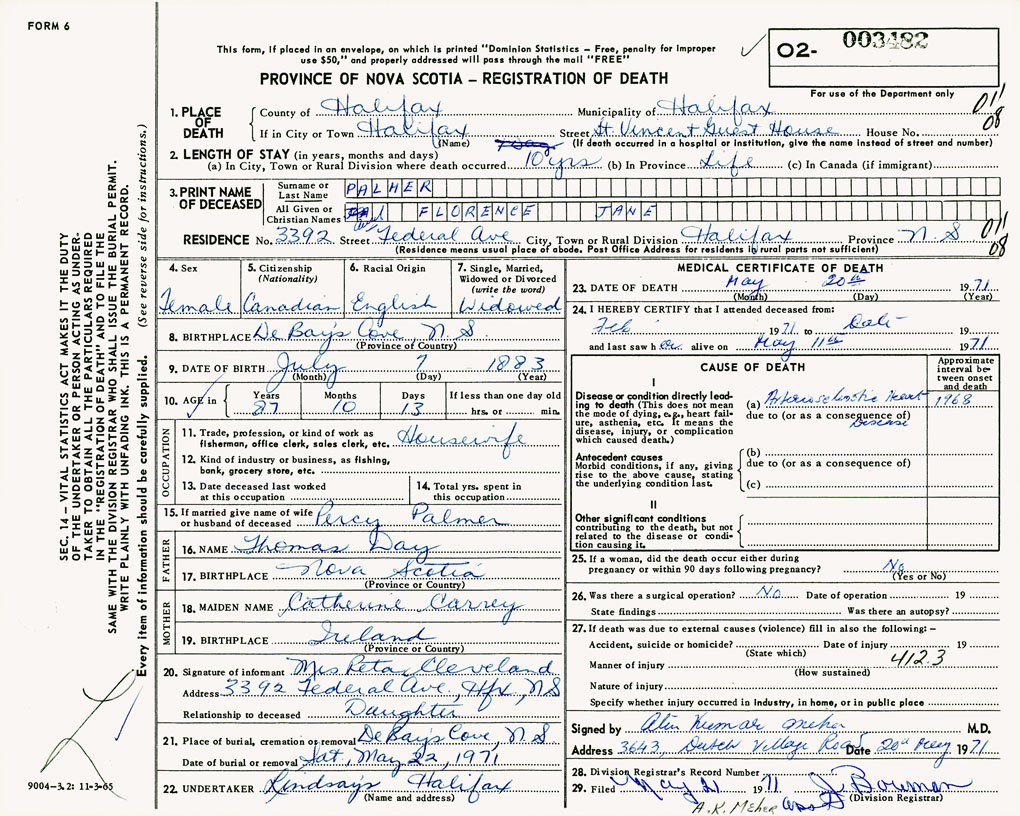 FORM 6
This form, if placed in an envelope, on which is printed "Dominion Statistics – Free, penalty for improper
use $50," and properly addressed will pass through the mail "FREE"
PROVINCE OF NOVA SCOTIA – REGISTRATION OF DEATH
O2- 003482
For use of the Department only
SEC. 14 – VITAL STATISTICS ACT MAKES IT THE DUTY
OF THE UNDERTAKER OR PERSON ACTING AS UNDER-
TAKER TO OBTAIN ALL THE PARTICULARS REQUIRED
IN THE "REGISTRATION OF DEATH" AND TO FILE THE
SAME WITH THE DIVISION REGISTRAR WHO SHALL ISSUE THE BURIAL PERMIT.
WRITE PLAINLY WITH UNFADING INK. THIS IS A PERMANENT RECORD.
Every item of information should be carefully supplied. (See reverse side for instructions.)
1. PLACE OF DEATH
County of Halifax Municipality of Halifax 011
If in City or Town Halifax Street St. Vincent Guest House House No. 08
(Name) (If death occurred in a hospital or institution, give the name instead of street and number)
2. LENGTH OF STAY (in years, months and days)
(a) In City, Town or Rural Division where death occurred 10 yrs (b) In Province Life (c) In Canada (if immigrant)
3. PRINT NAME OF DECEASED
Surname or Last Name PALMER
All Given or Christian Names FLORENCE JANE
RESIDENCE No. 3392 Street Federal Ave City, Town or Rural Division Halifax Province N.S 011
08
(Residence means usual place of abode. Post Office Address for residents in rural parts not sufficient)
4. Sex
Female
5. Citizenship (Nationality)
Canadian
6. Racial Origin
English
7. Single, Married, Widowed or Divorced (write the word)
Widowed
8. BIRTHPLACE De Bay's Cove, N.S
(Province of Country)
9. DATE OF BIRTH July 7 1883
(Month) (Day) (Year)
10. AGE in Years 87 Months 10 Days 13 If less than one day old
hrs. or min.
OCCUPATION
11. Trade, profession, or kind of work as
fisherman, office clerk, sales clerk, etc. Housewife
12. Kind of industry or business, as fishing,
bank, grocery store, etc.
13. Date deceased last worked
at this occupation
14. Total yrs. spent in
this occupation
15. If married give name of wife
or husband of deceased Percy Palmer
FATHER
16. NAME Thomas Day
17. BIRTHPLACE Nova Scotia
(Province or Country)
MOTHER
18. MAIDEN NAME Catherine Carrey
19. BIRTHPLACE Ireland
(Province or Country)
20. Signature of informant Mrs Reta Cleveland
Address 3392 Federal Ave., Hfx, N.S
Relationship to deceased Daughter
21. Place of burial, cremation or removal De Bay's Cove, N.S
Date of burial or removal Sat, May 22, 1971
22. UNDERTAKER Lindsay's Halifax
(Name and address)
9004–3.2: 11-3-65
MEDICAL CERTIFICATE OF DEATH
23. DATE OF DEATH May 20th 1971
(Month) (Day) (Year)
24. I HEREBY CERTIFY that I attended deceased from:
Feb 1971 to Date 19
and last saw her alive on May 11th 1971
CAUSE OF DEATH
Approximate interval between onset and death
I
Disease or condition directly leading to death (This does not mean the mode of dying, e.g., heart failure, asthenia, etc. It means the disease, injury, or complication which caused death.)
(a) Arteriosclerotic Heart 1968
due to (or as a consequence of)
Disease
Antecedent causes
Morbid conditions, if any, giving rise to the above cause, stating the underlying condition last.
(b)
due to (or as a consequence of)
(c)
II
Other significant conditions
contributing to the death, but not
related to the disease or condition causing it.
25. If a woman, did the death occur either during
pregnancy or within 90 days following pregnancy? No
(Yes or No)
26. Was there a surgical operation? No Date of operation 19
State findings Was there an autopsy?
27. If death was due to external causes (violence) fill in also the following: –
Accident, suicide or homicide? Date of injury 19
(State which)
Manner of injury 412.3
(How sustained)
Nature of injury
Specify whether injury occurred in industry, in home, or in public place
Signed by Kumar Meher M.D.
Address 3643, Dutch Village Road Date 20th May 1971
28. Division Registrar's Record Number
29. Filed May 21 1971 J. Bowman
(Division Registrar)
A.K. Meher